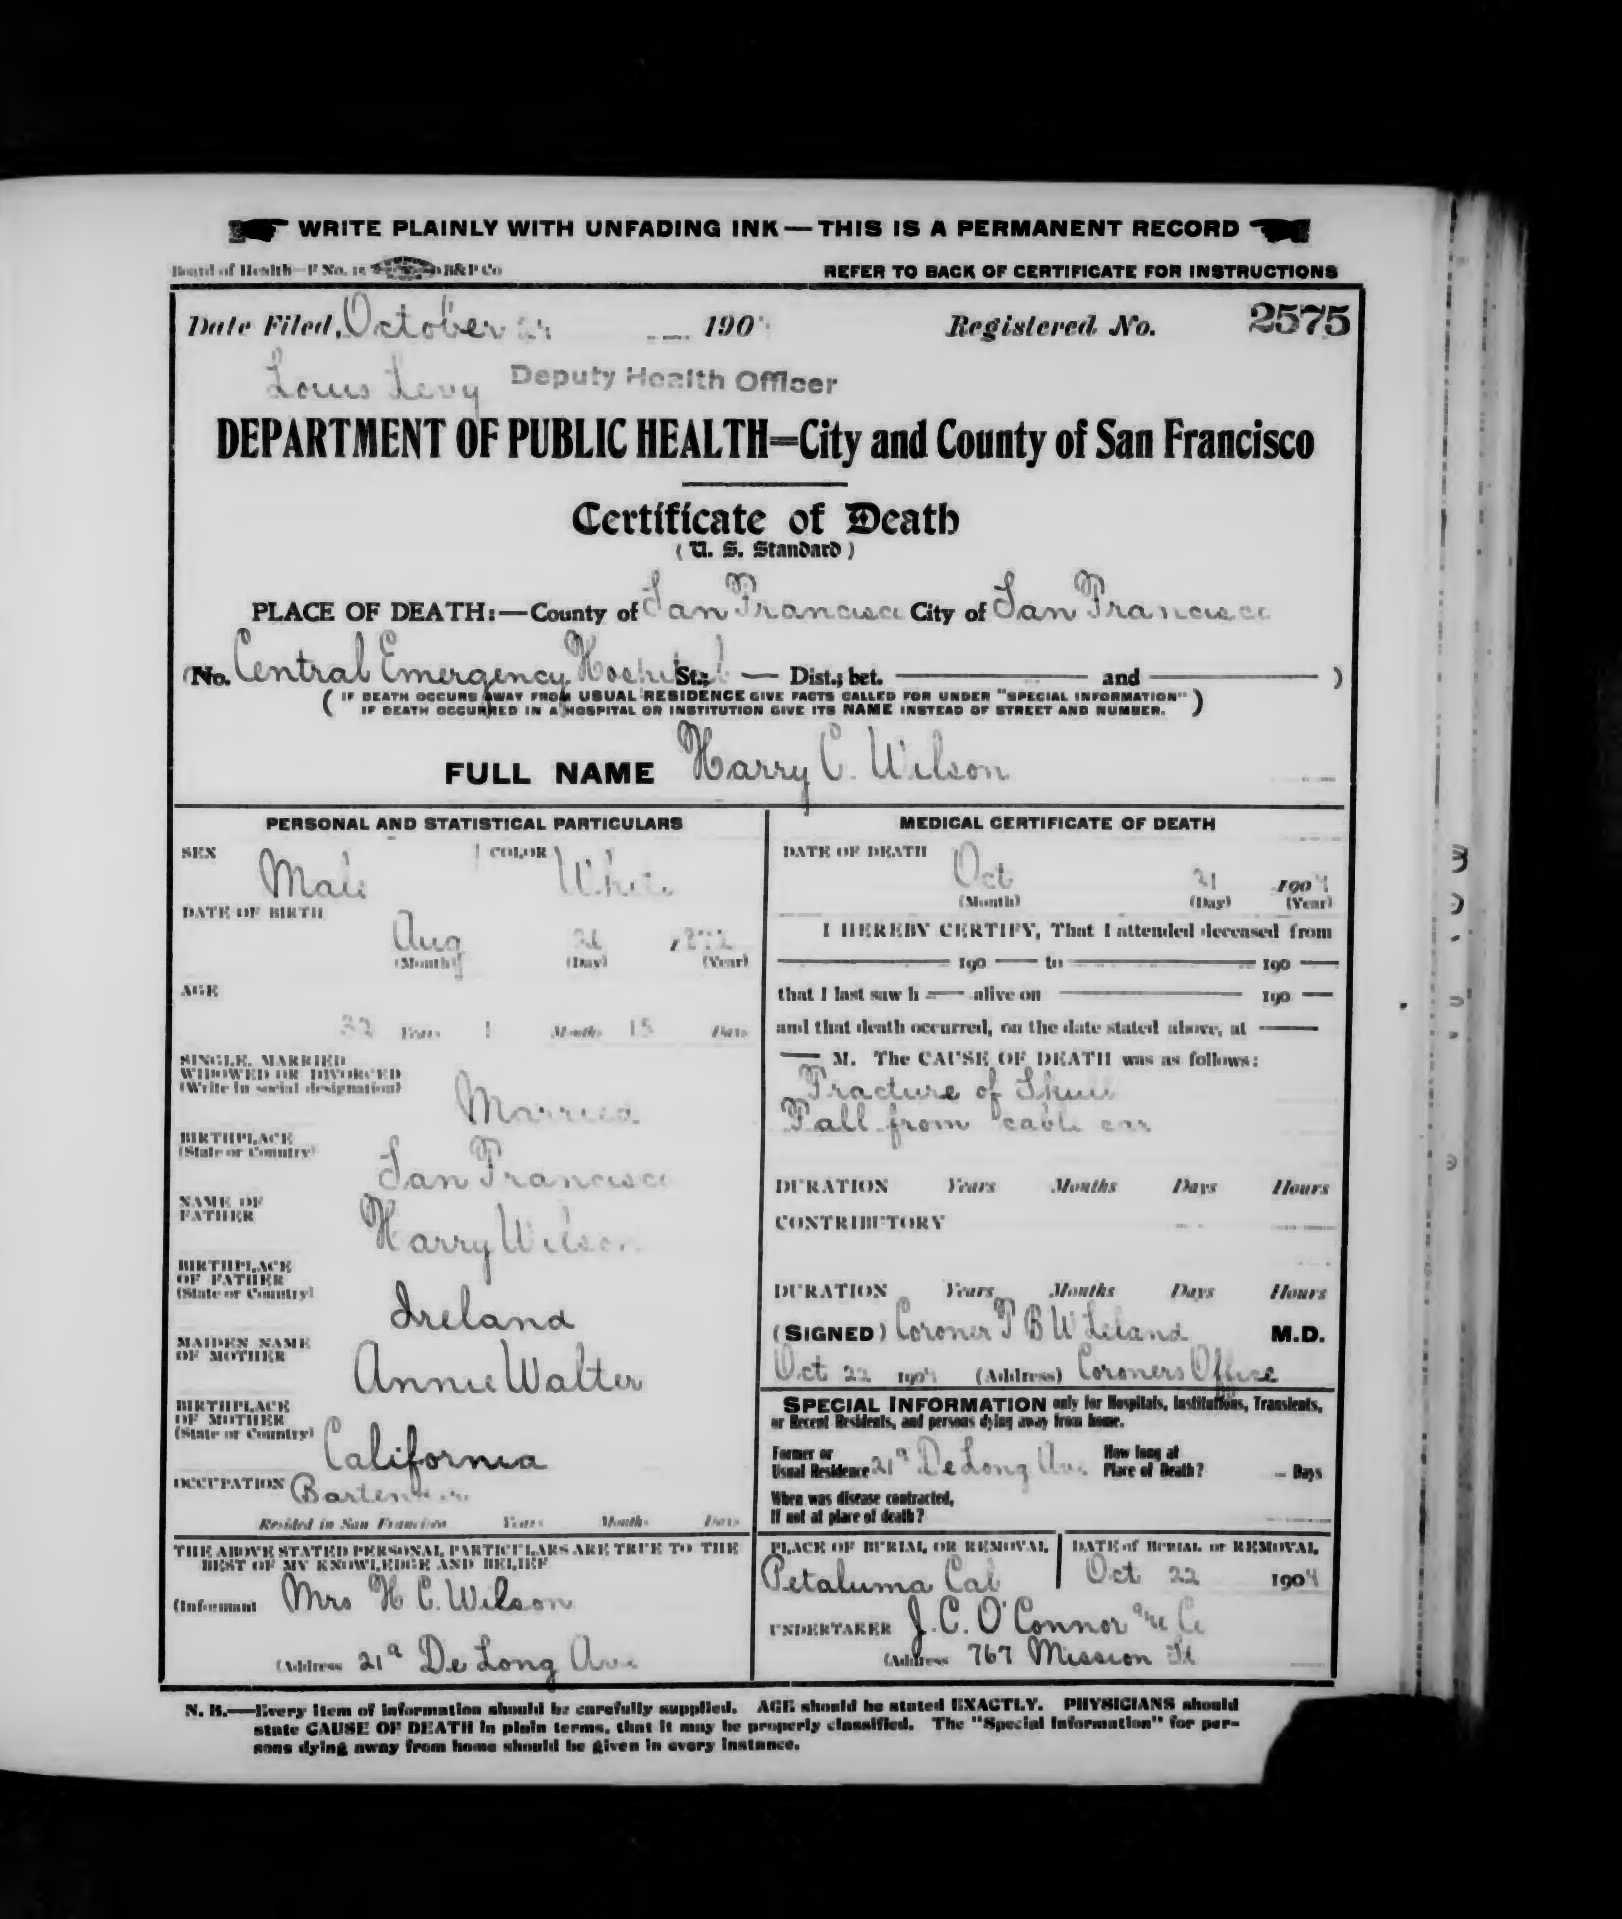 WRITE PLAINLY WITH UNFADING INK — THIS IS A PERMANENT RECORD
Board of Health—F No. 15 B&P Co
REFER TO BACK OF CERTIFICATE FOR INSTRUCTIONS
Date Filed, October 190
Registered No. 2575
Louis Levy Deputy Health Officer
DEPARTMENT OF PUBLIC HEALTH=City and County of San Francisco
Certificate of Death
(U. S. Standard)
PLACE OF DEATH:—County of San Francisco City of San Francisco
(No. Central Emergency Hospital St.; — Dist.; bet. — and — )
( IF DEATH OCCURS AWAY FROM USUAL RESIDENCE GIVE FACTS CALLED FOR UNDER "SPECIAL INFORMATION"
IF DEATH OCCURRED IN A HOSPITAL OR INSTITUTION GIVE ITS NAME INSTEAD OF STREET AND NUMBER. )
FULL NAME Harry C. Wilson
PERSONAL AND STATISTICAL PARTICULARS
SEX Male COLOR White
DATE OF BIRTH
Aug
(Month) (Day) (Year)
AGE
32 Years 1 Months 15 Days
SINGLE, MARRIED
WIDOWED OR DIVORCED
(Write in social designation)
Married
BIRTHPLACE
(State or Country)
San Francisco
NAME OF
FATHER
Harry Wilson
BIRTHPLACE
OF FATHER
(State or Country)
Ireland
MAIDEN NAME
OF MOTHER
Annie Walter
BIRTHPLACE
OF MOTHER
(State or Country)
California
OCCUPATION Bartender
Resided in San Francisco Years Months Days
THE ABOVE STATED PERSONAL PARTICULARS ARE TRUE TO THE
BEST OF MY KNOWLEDGE AND BELIEF
(Informant Mrs H C. Wilson
(Address 21a De Long Ave
MEDICAL CERTIFICATE OF DEATH
DATE OF DEATH
Oct 21 1904
(Month) (Day) (Year)
I HEREBY CERTIFY, That I attended deceased from
— 190 — to — 190 —
that I last saw h — alive on — 190 —
and that death occurred, on the date stated above, at —
— M. The CAUSE OF DEATH was as follows:
Fracture of Skull
Fall from cable car
DURATION Years Months Days Hours
CONTRIBUTORY
DURATION Years Months Days Hours
(SIGNED) Coroner T B W Leland M.D.
Oct 22 1904 (Address) Coroners Office
SPECIAL INFORMATION only for Hospitals, Institutions, Transients,
or Recent Residents, and persons dying away from home.
Former or
Usual Residence 21a De Long Ave
How long at
Place of Death? — Days
When was disease contracted,
If not at place of death?
PLACE OF BURIAL OR REMOVAL
Petaluma Cal
DATE of BURIAL or REMOVAL
Oct 22 1904
UNDERTAKER J. C. O'Connor and Co
(Address 767 Mission St
N. B.—Every item of information should be carefully supplied. AGE should be stated EXACTLY. PHYSICIANS should
state CAUSE OF DEATH in plain terms, that it may be properly classified. The "Special Information" for per-
sons dying away from home should be given in every instance.